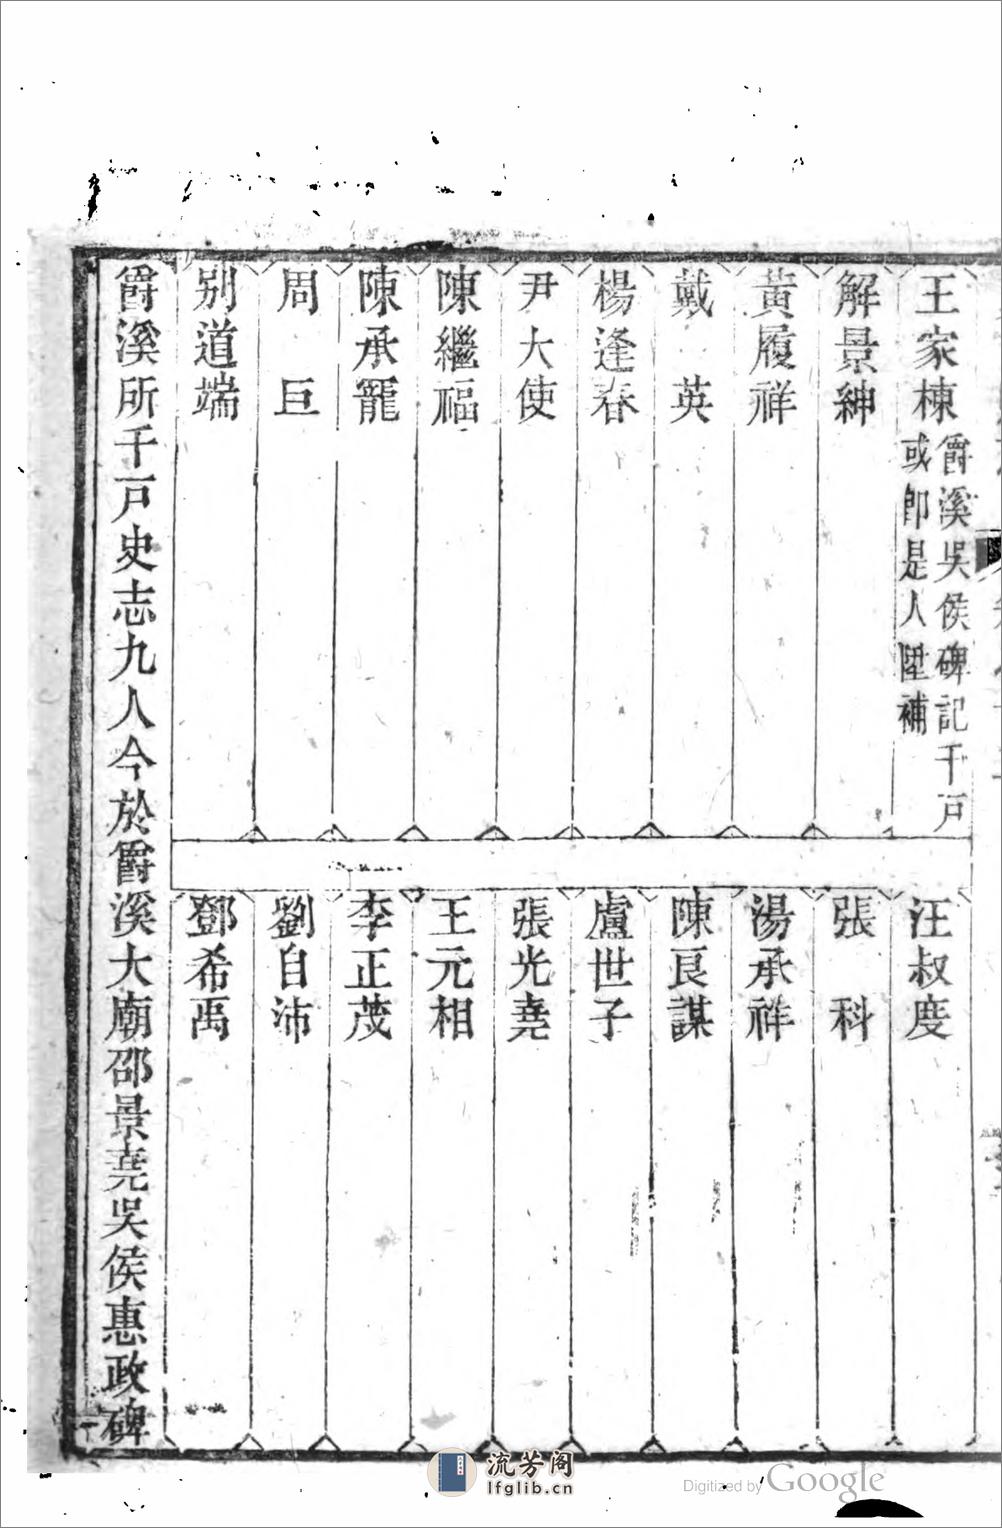 王家棟 爵溪吳侯碑記千戸
或卽是人陞補
解景紳
黃履祥
戴英
楊逢春
尹大使
陳繼福
陳承寵
周巨
别道端
汪叔度
張科
湯承祥
陳良謀
盧世子
張光堯
王元相
李正茂
劉自沛
鄧希禹
爵溪所千戸史志九人今於爵溪大廟邵景堯吳侯惠政碑
流芳阁
lfglib.cn
Digitized by Google